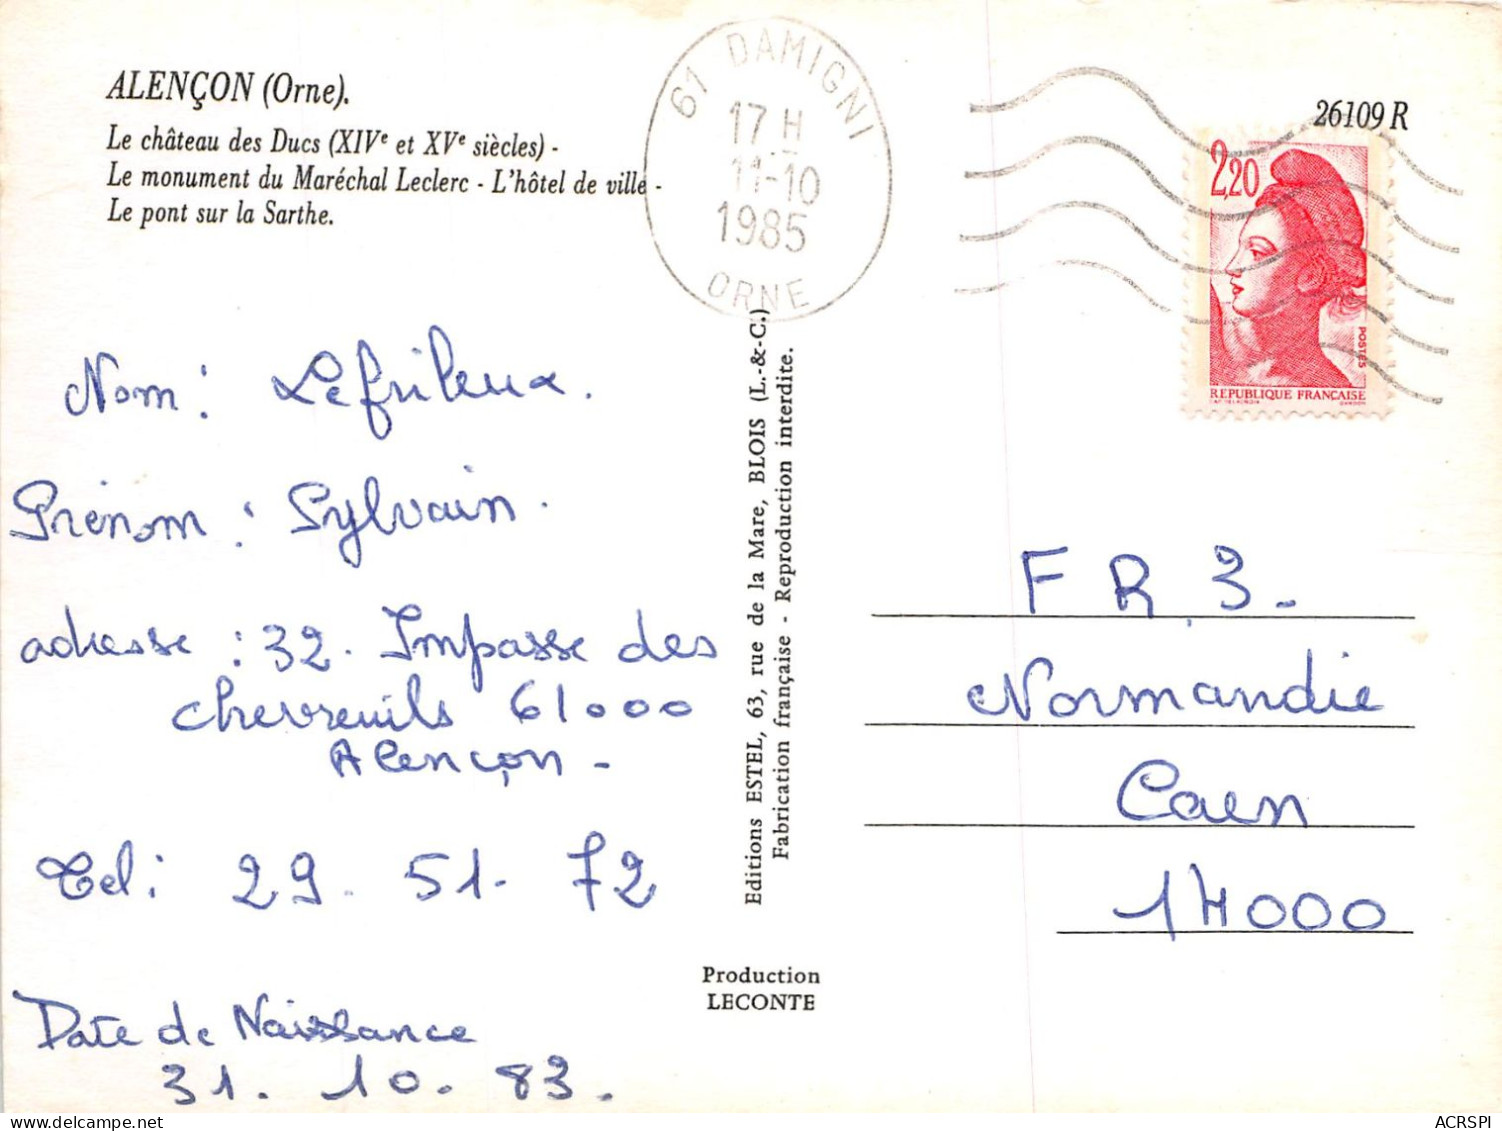 ALENÇON (Orne).
Le château des Ducs (XIVe et XVe siècles) -
Le monument du Maréchal Leclerc - L'hôtel de ville -
Le pont sur la Sarthe.
61 DAMIGNI
17 H
11-10
1985
ORNE
26109 R
2,20
POSTES
REPUBLIQUE FRANÇAISE
Nom : Lefrileux.
Prénom : Sylvain.
adresse : 32. Impasse des
chevreuils 61000
Alençon -
Tel : 29. 51. 72
Date de Naissance
31. 10. 83.
Editions ESTEL, 63, rue de la Mare, BLOIS (L.-&-C.)
Fabrication française - Reproduction interdite.
Production
LECONTE
F R 3.
Normandie
Caen
14000
ACRSPI